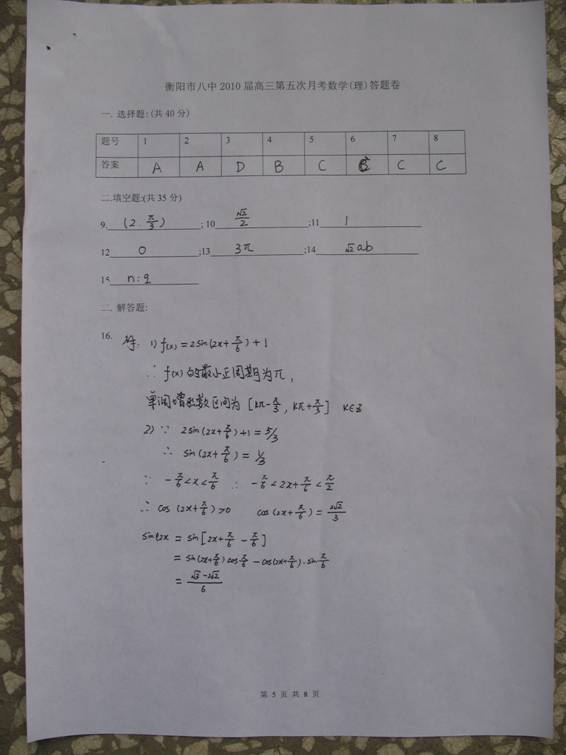 衡阳市八中 2010 届高三第五次月考数学(理)答题卷
一. 选择题:(共 40 分)
题号 1 2 3 4 5 6 7 8
答案 A A D B C C C
二.填空题:(共 35 分)
9. (2, π/3) ; 10 √2/2 ;11 1
12 0 ;13 3π ;14 √2ab
15 n:9
二. 解答题:
16. 解: 1) f(x)=2sin(2x+π/6)+1
∴ f(x)的最小正周期为π,
单调增函数区间为 [kπ-π/3, kπ+π/6] k∈Z
2) ∵ 2sin(2x+π/6)+1=5/3
∴ sin(2x+π/6)=1/3
∵ -π/6<x<π/6 ∴ -π/6<2x+π/6<π/2
∴ cos(2x+π/6)>0 cos(2x+π/6)=2√2/3
sin2x = sin[2x+π/6-π/6]
= sin(2x+π/6)cosπ/6-cos(2x+π/6)·sinπ/6
= √3-2√2/6
第 5 页 共 8 页